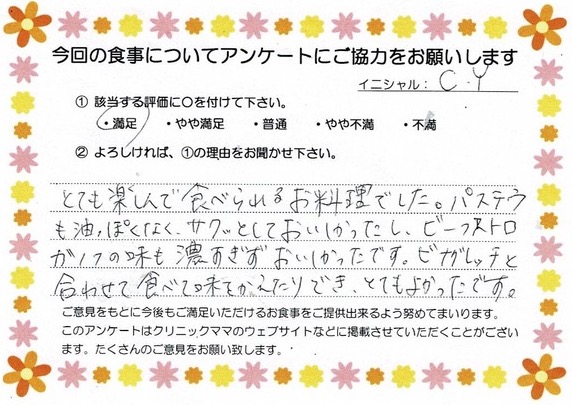 今回の食事についてアンケートにご協力をお願いします
イニシャル： C.Y
① 該当する評価に〇を付けて下さい。
・満足 ・やや満足 ・普通 ・やや不満 ・不満
② よろしければ、①の理由をお聞かせ下さい。
とても楽しんで食べられるお料理でした。パステウ
も油っぽくなく、サクッとしておいしかったし、ビーフストロ
ガノフの味も濃すぎずおいしかったです。ビナグレッチと
合わせて食べて味をかえたりでき、とてもよかったです。
ご意見をもとに今後もご満足いただけるお食事をご提供出来るよう努めてまいります。
このアンケートはクリニックママのウェブサイトなどに掲載させていただくことがござい
ます。たくさんのご意見をお願い致します。